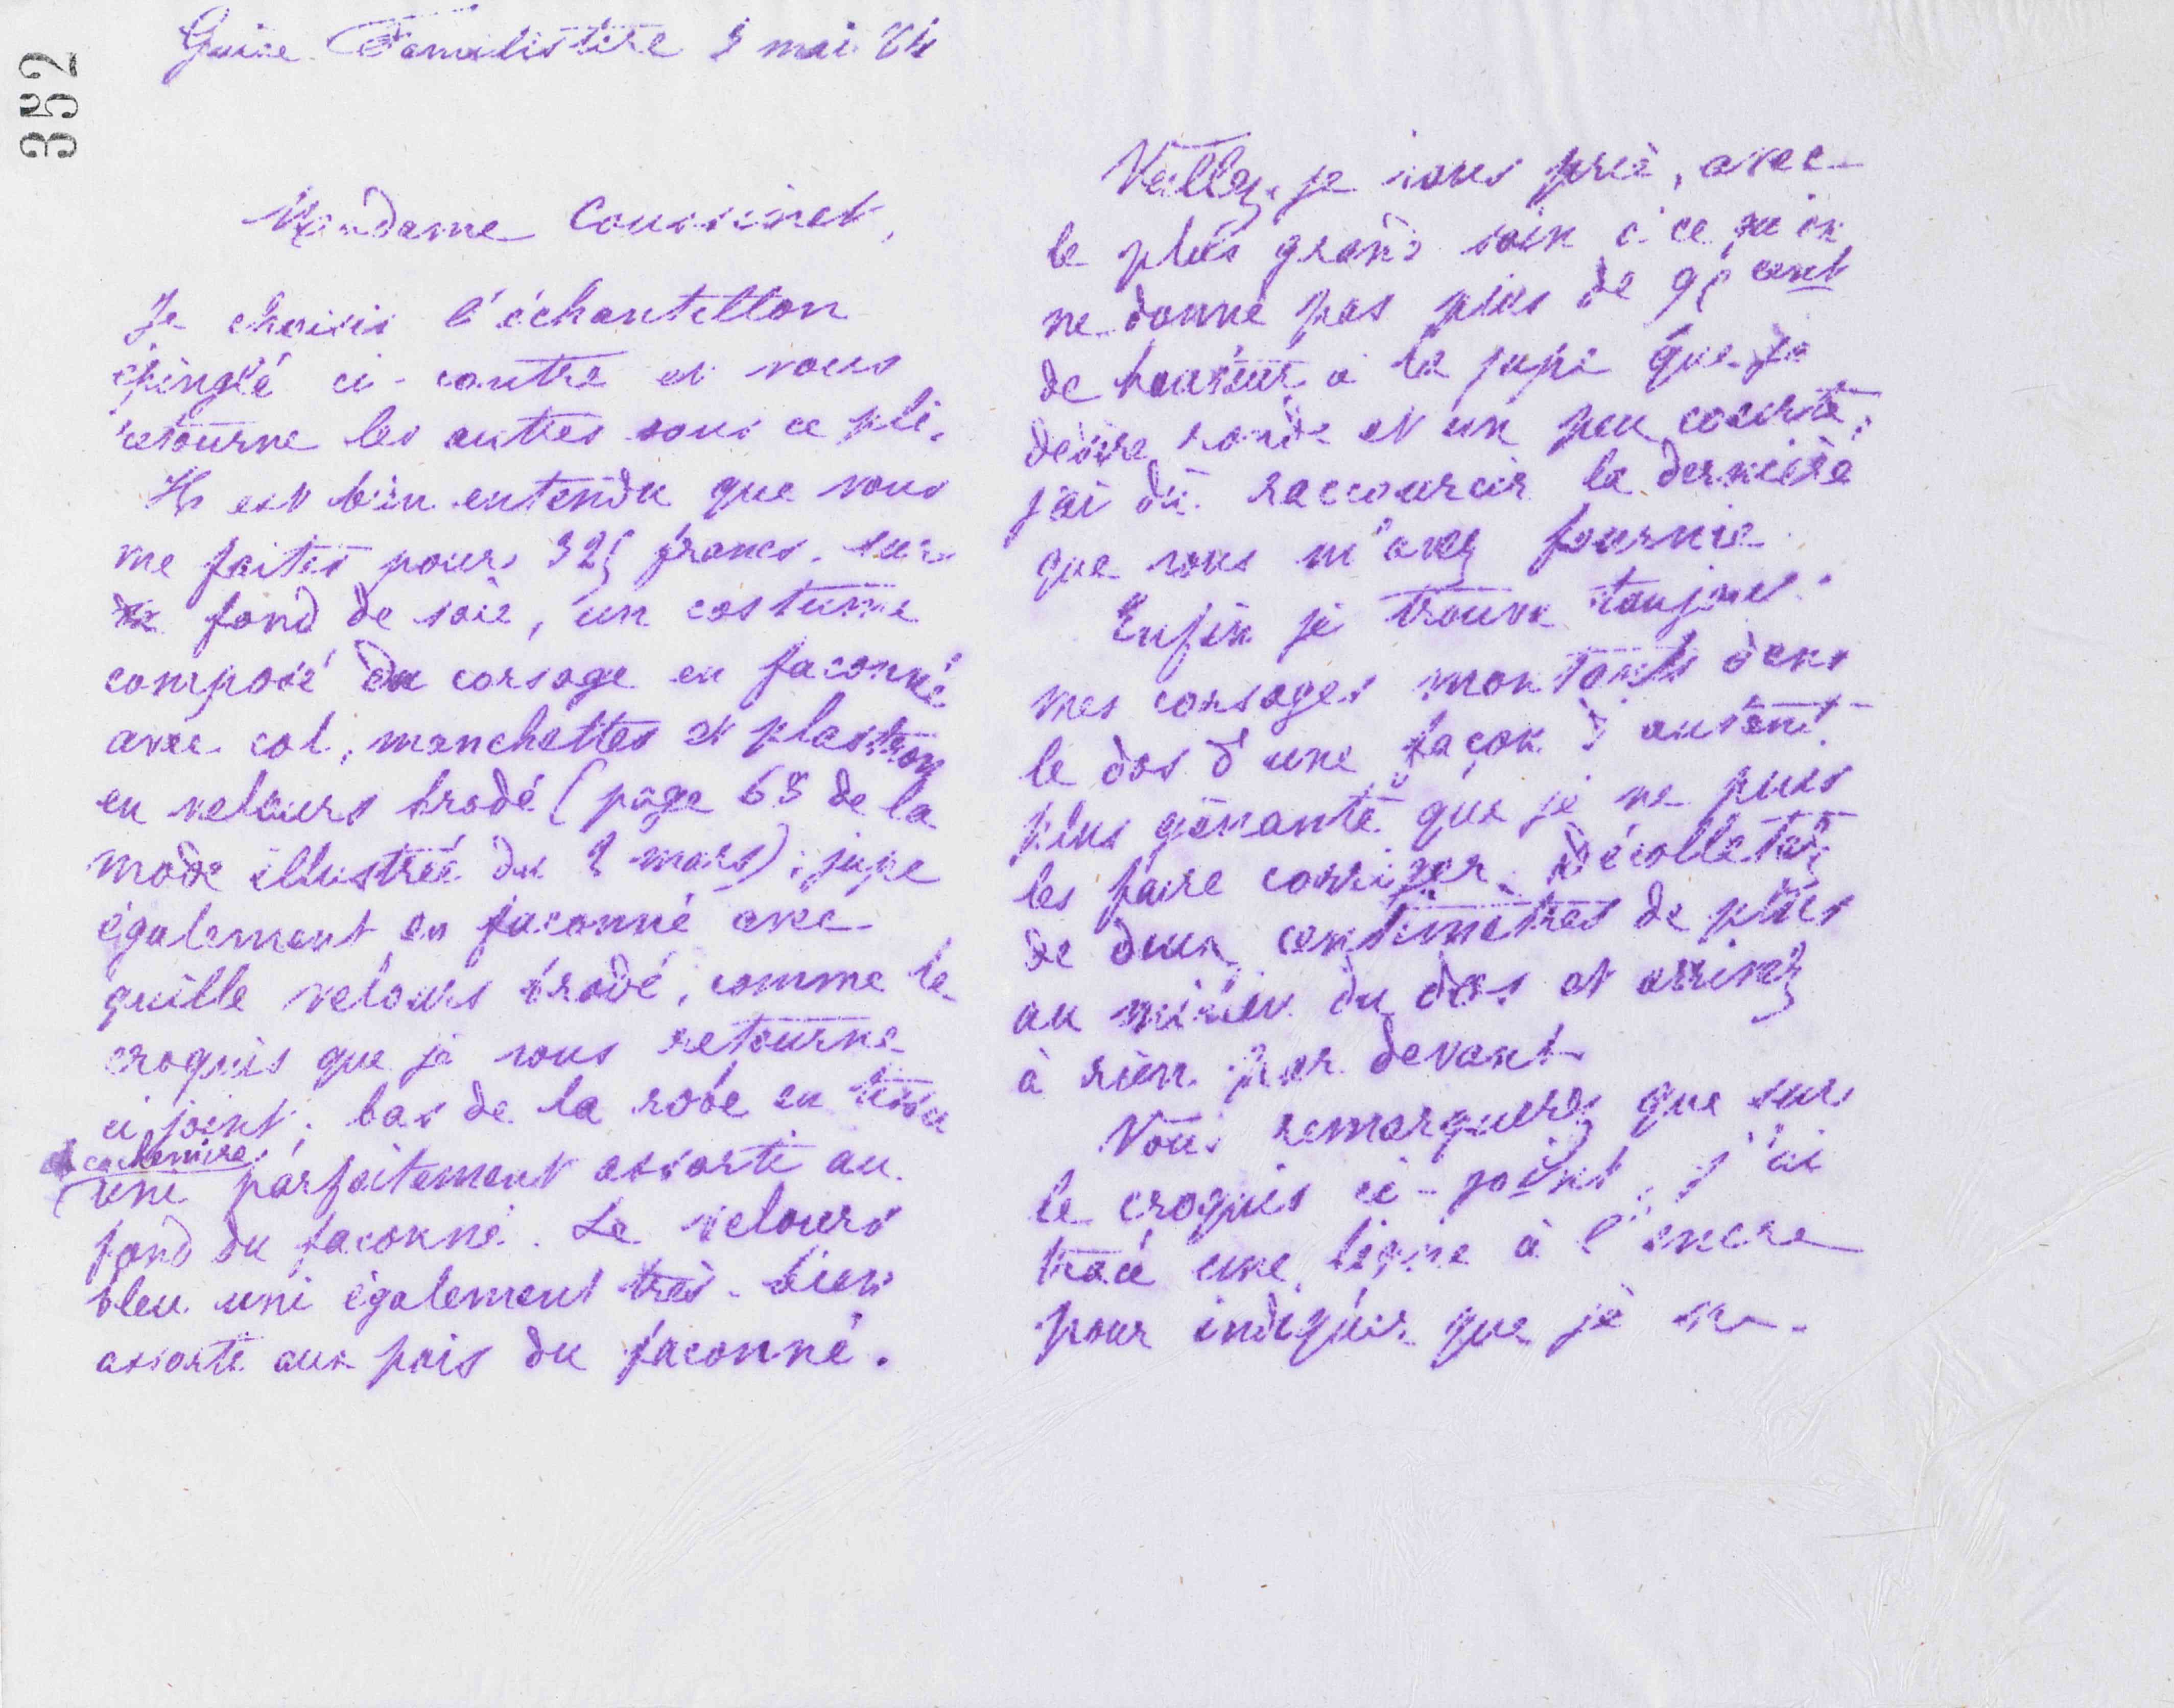 352
Guise. Familistère 3 mai 84
Madame Coussinet,
Je choisis l'échantillon
épinglé ci-contre et vous
retourne les autres sous ce pli.
Il est bien entendu que vous
me faites pour 325 francs, sur
fond de soie, un costume
composé du corsage en façonné
avec col, manchettes et plastron
en velours brodé (page 68 de la
mode illustrée du 2 mars); jupe
également en façonné avec
quille velours brodé, comme le
croquis que je vous retourne
ci-joint; bas de la robe en tissu
cachemire
uni parfaitement assorti au
fond du façonné. Le velours
bleu uni également très-bien
assorti aux pois du façonné.
Veillez, je vous prie, avec
le plus grand soin à ce qu'on
ne donne pas plus de 95 cent
de hauteur à la jupe que je
désire ronde et un peu courte;
j'ai dû raccourcir la dernière
que vous m'avez fournie.
Enfin je trouve toujours
mes corsages montants dans
le dos d'une façon d'autant
plus gênante que je ne puis
les faire corriger. Décolletez
de deux centimètres de plus
au milieu du dos et arrivez
à rien par devant.
Vous remarquerez que sur
le croquis ci-joint, j'ai
tracé une ligne à l'encre
pour indiquer que je ne